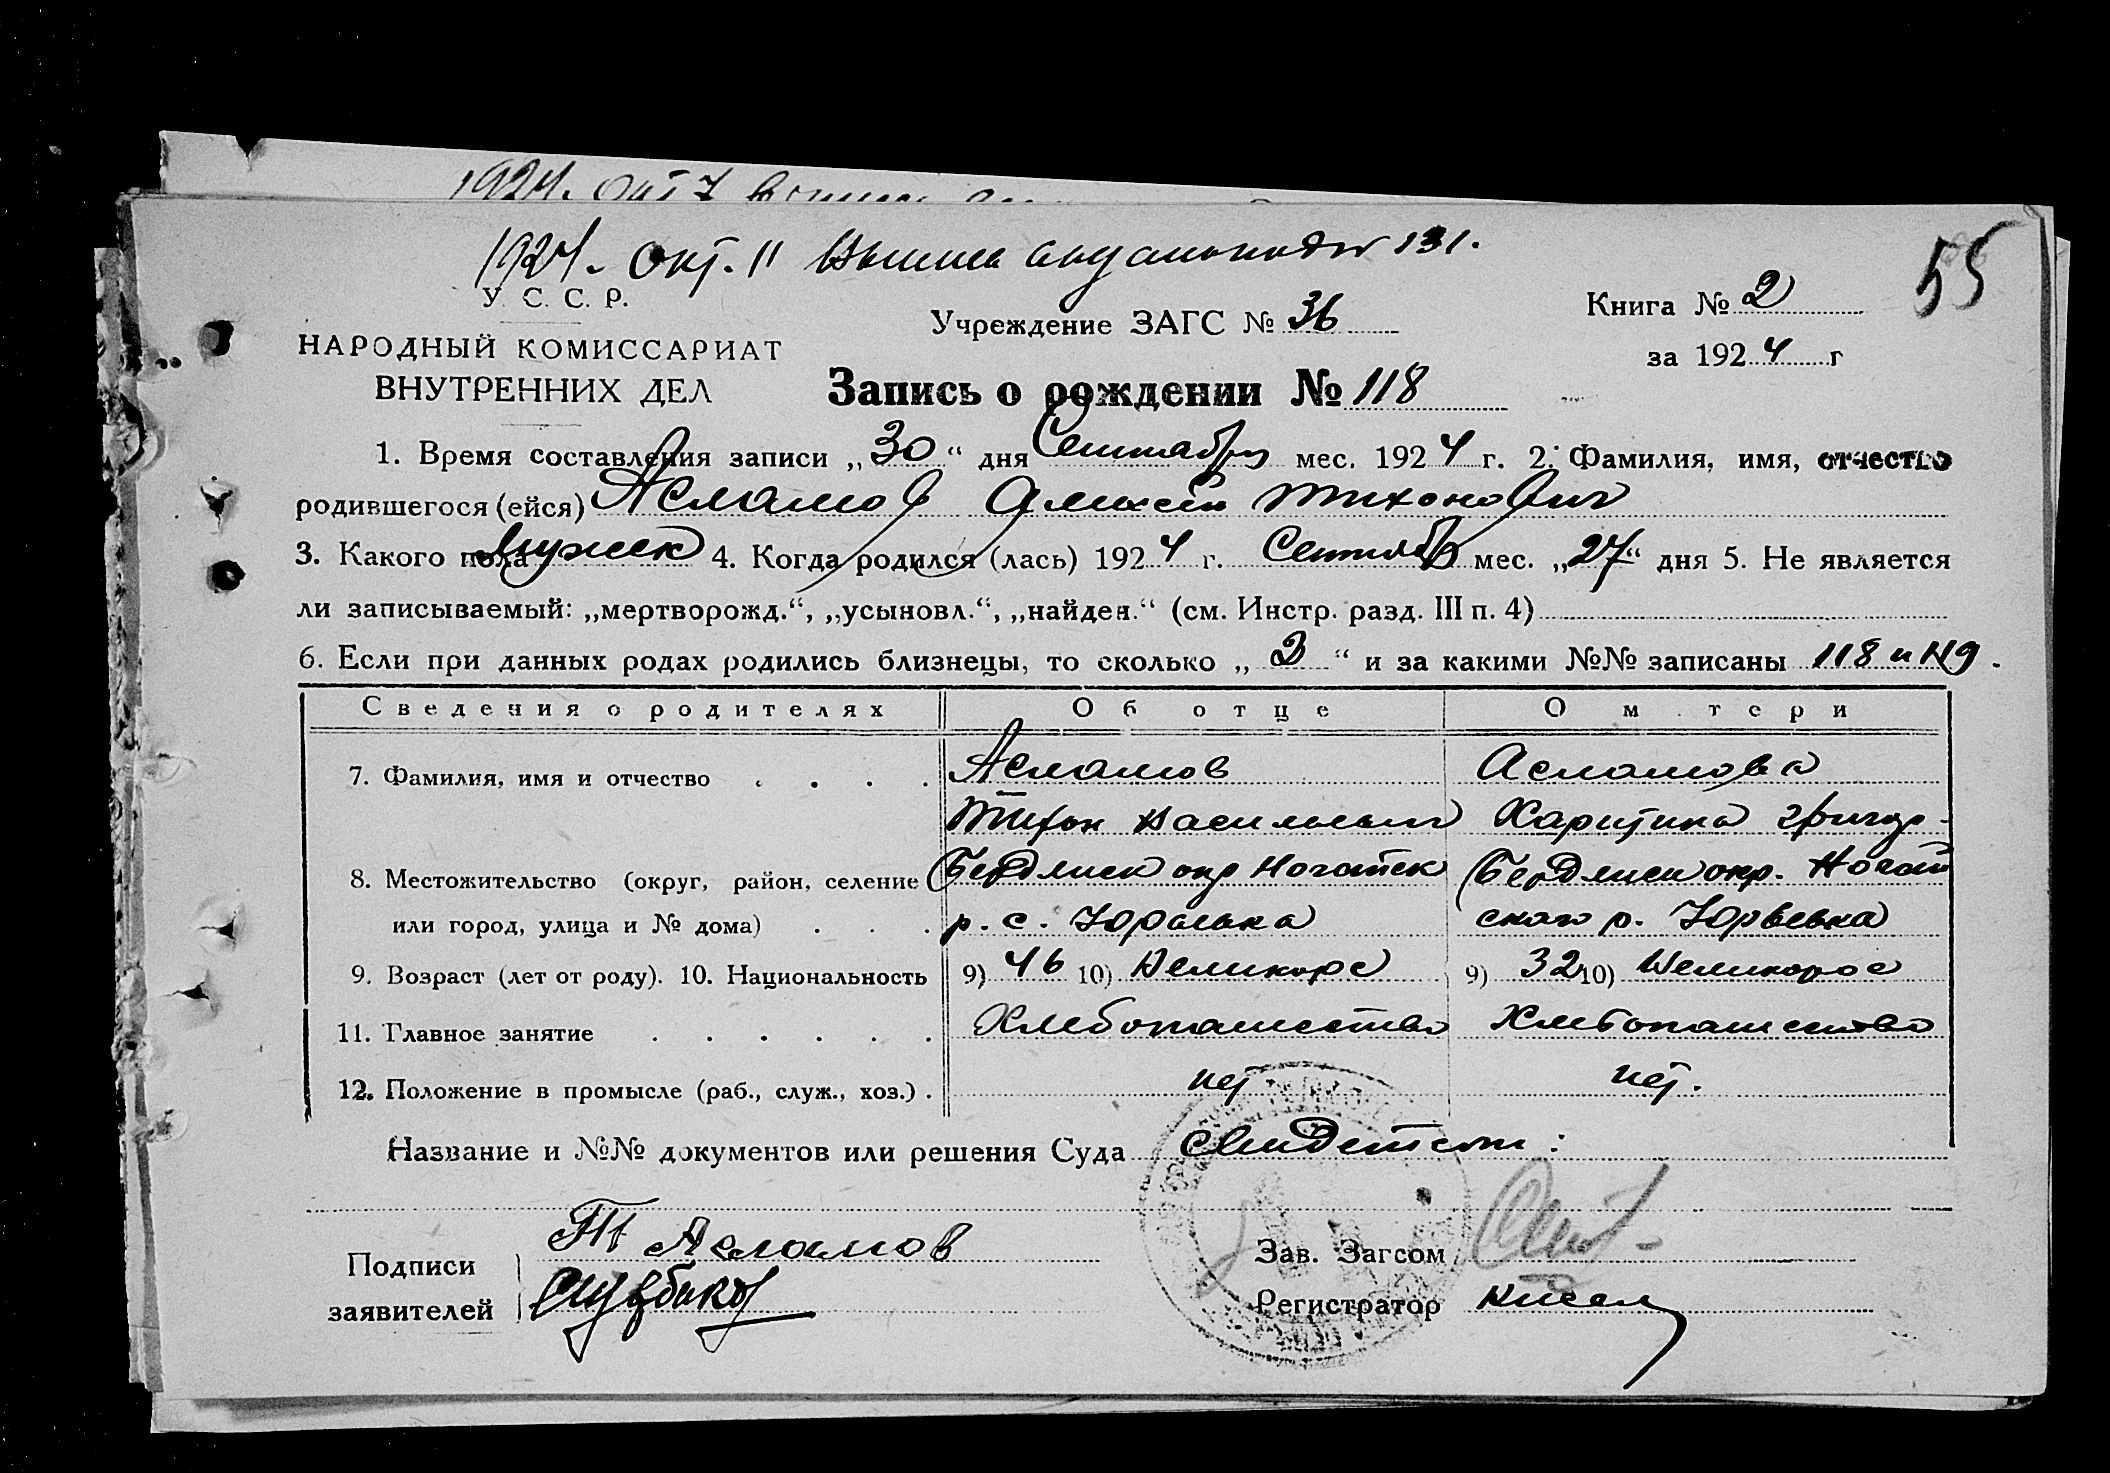 1924. Окт. 11 131.
55
У. С. С. Р.
НАРОДНЫЙ КОМИССАРИАТ
ВНУТРЕННИХ ДЕЛ
Учреждение ЗАГС № 36
Книга № 2
за 1924 г
Запись о рождении № 118
1. Время составления записи „30“ дня Сентября мес. 1924 г. 2. Фамилия, имя, отчество
родившегося (ейся) Асламов Алексей Тихонович
3. Какого пола Мужск 4. Когда родился (лась) 1924 г. Сентябр мес. „27“ дня 5. Не является
ли записываемый: „мертворожд.“, „усыновл.“, „найден.“ (см. Инстр. разд. III п. 4)
6. Если при данных родах родились близнецы, то сколько „2“ и за какими №№ записаны 118 и 119.
Сведения о родителях Об отце О м тери
7. Фамилия, имя и отчество Асламов Асламова
Тихон Васильевич Харитина Григор-
8. Местожительство (округ, район, селение Бердянск окр Ногайск Бердянск окр. Ногай
или город, улица и № дома) р. с. Юрьевка ского р. Юрьевка
9. Возраст (лет от роду). 10. Национальность 9) 46 10) Великорос 9) 32 10) Великорос
11. Главное занятие Хлебопашество Хлебопашество
12. Положение в промысле (раб., служ., хоз.) нет нет.
Название и №№ документов или решения Суда
Подписи
заявителей
Т Асламов
Щербаков
Зав. Загсом
Регистратор